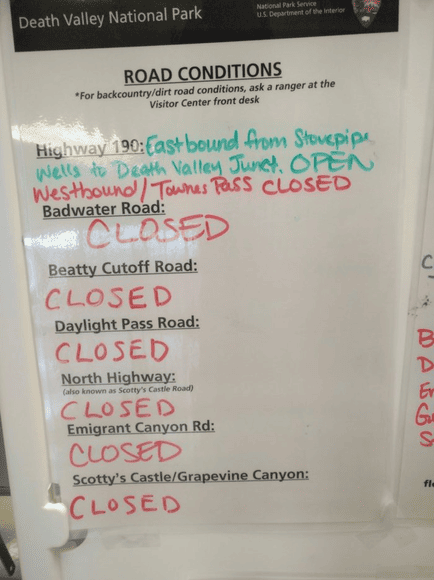 Death Valley National Park
National Park Service
U.S. Department of the Interior
ROAD CONDITIONS
*For backcountry/dirt road conditions, ask a ranger at the
Visitor Center front desk
Highway 190: Eastbound from Stovepipe
Wells to Death Valley Junct. OPEN
Westbound/Townes Pass CLOSED
Badwater Road:
CLOSED
Beatty Cutoff Road:
CLOSED
Daylight Pass Road:
CLOSED
North Highway:
(also known as Scotty's Castle Road)
CLOSED
Emigrant Canyon Rd:
CLOSED
Scotty's Castle/Grapevine Canyon:
CLOSED